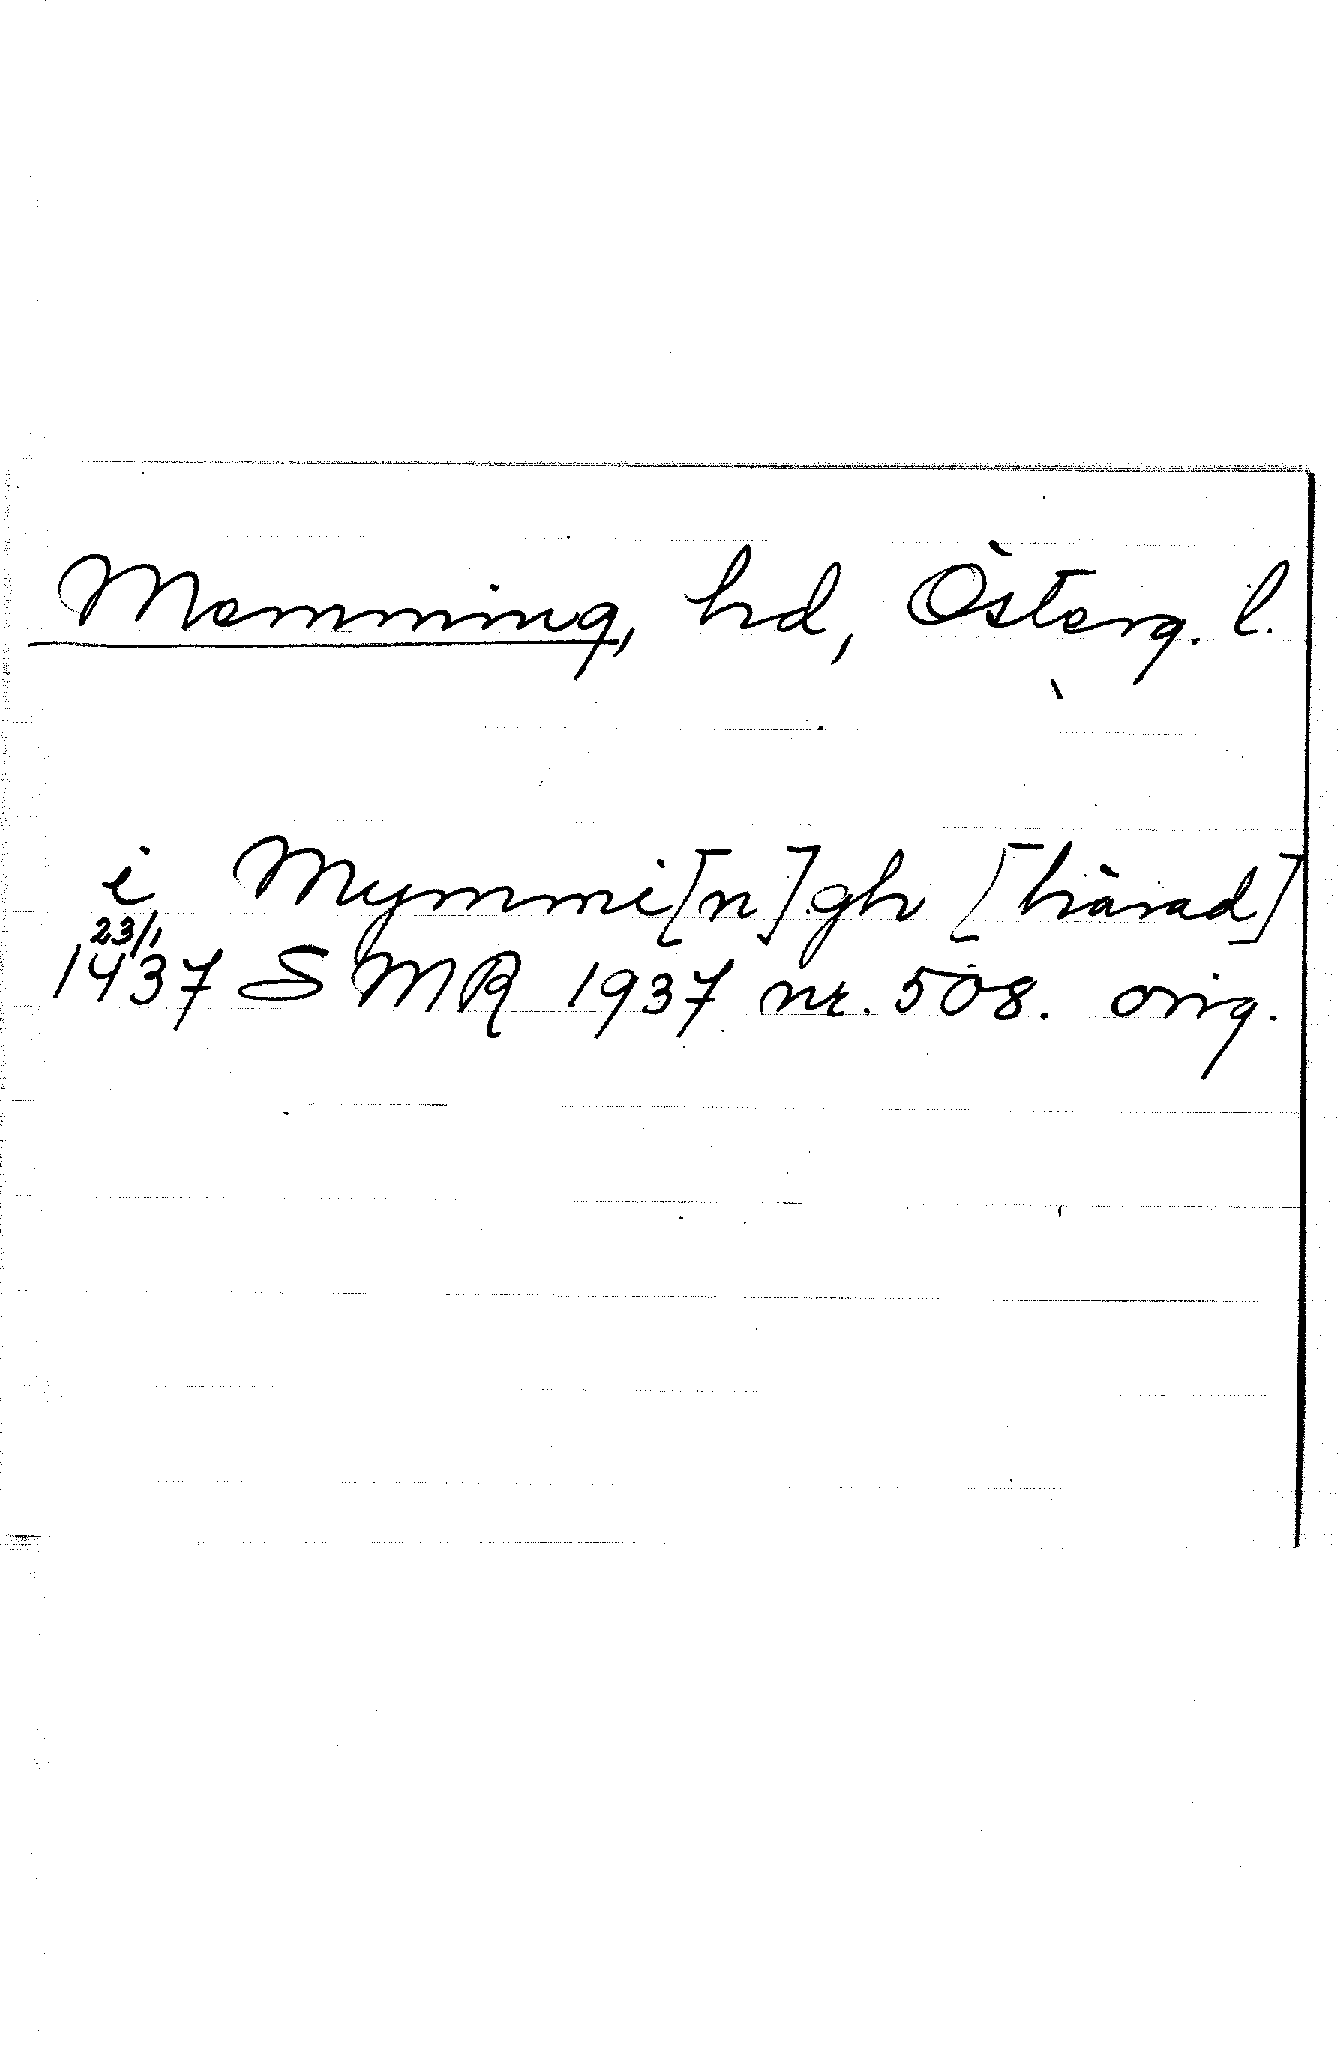 Memming, hd, Österg. l.
i Mymmi[n]gh [härad]
23/1
1437 SMR 1937 nr. 508. orig.